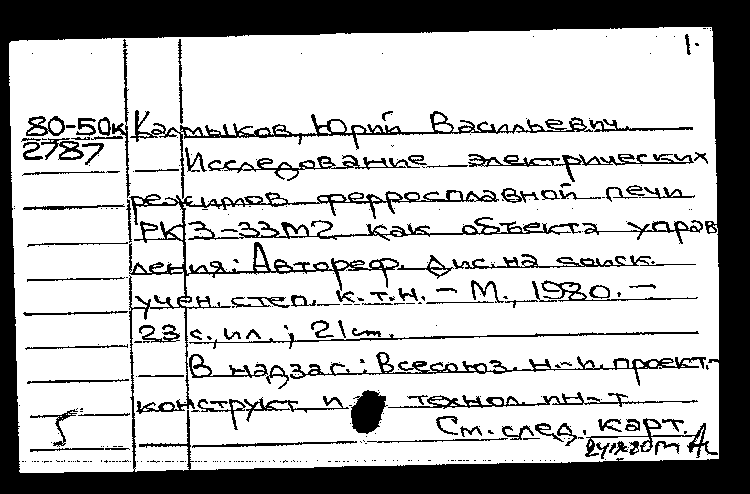 1.
80-50к Калмыков, Юрий Васильевич
2787 Исследование электрических
режимов ферросплавной печи
РКЗ-33М2 как объекта управ
ления: Автореф. дис. на соиск.
учен. степ. к.т.н. - М., 1980. -
23 с., ил.; 21 см.
В надзаг.: Всесоюз. н.-и. проект.-
конструкт. и технол. ин-т
См. след. карт.
5